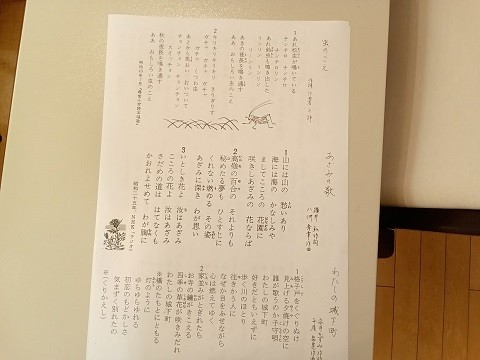 虫のこえ
1 あれ松虫が鳴いている
チンチロ チンチロ
チンチロリン
あれ鈴虫も鳴き出した
リンリン リンリン
あきの夜長を鳴き通す
ああ おもしろい虫のこえ
2 キリキリキリキリ
ガチャ ガチャ ガチャ ガチャ
あとから馬おい おいついて
チョンチョン チョンチョン
スイッチョン
秋の夜長を鳴き通す
ああ おもしろい虫のこえ
あざみの歌
1 山には山の 愁いあり
海には海の かなしみや
ましてこころの 花園に
咲きしあざみの 花ならば
2 高嶺の百合の それよりも
秘めたる夢を ひとすじに
くれない燃ゆる その姿
あざみに深き わが想い
いとしき花よ 汝はあざみ
こころの花よ 汝はあざみ
さだめの道は はてなくも
かおれよせめて わが胸に
昭和二十五年
わたしの城下町
1 格子戸をくぐりぬけ
見上げる夕焼けの空に
誰が歌うのか子守唄
わたしの城下町
好きだともいえずに
歩く川のほとり
往きかう人に
なぜか目をふせながら
心は燃えてゆく
2 家並みがとぎれたら
お寺の鐘がきこえる
四季の草花が咲きみだれ
わたしの城下町
※橋のたもとにともる
灯のように
ゆらゆらゆれる
初恋のもどかしさ
気まずく別れたの
※(くりかえし)